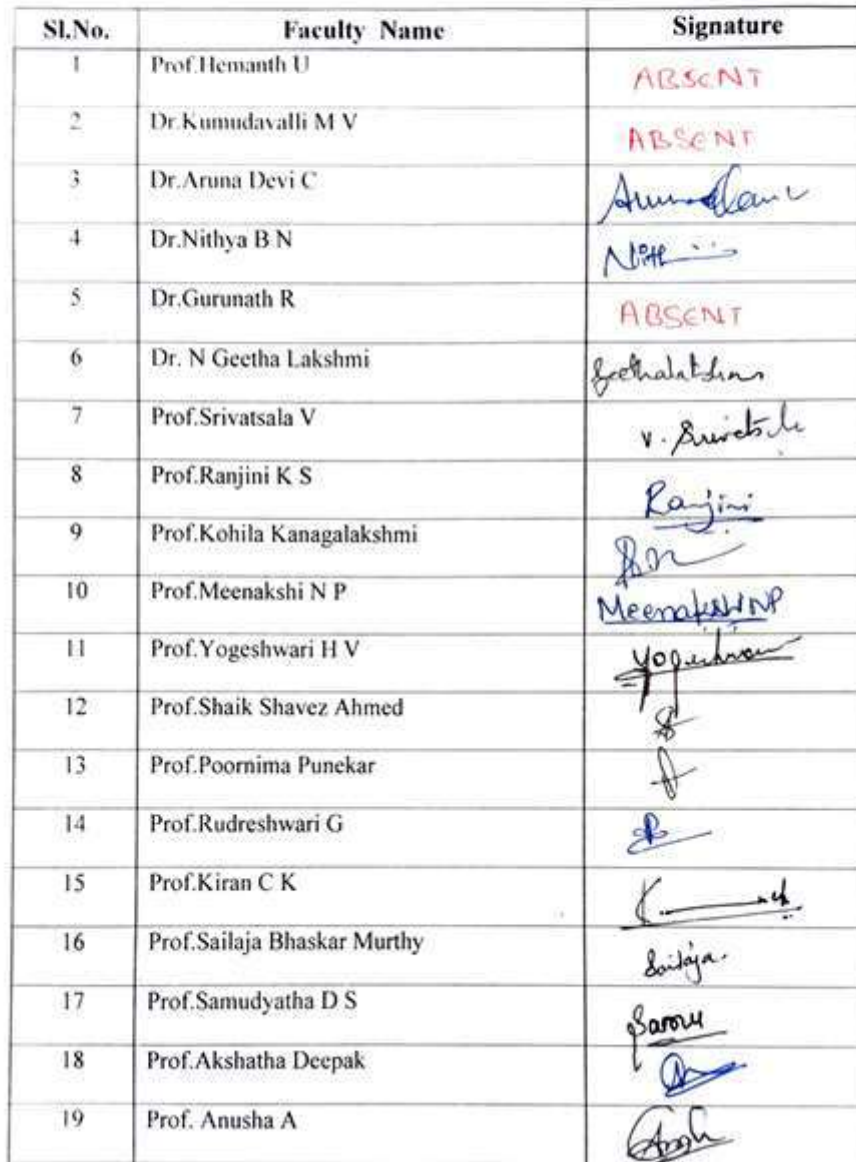 Sl.No. Faculty Name Signature
1 Prof.Hemanth U ABSENT
2 Dr.Kumudavalli M V ABSENT
3 Dr.Aruna Devi C
4 Dr.Nithya B N
5 Dr.Gurunath R ABSENT
6 Dr. N Geetha Lakshmi
7 Prof.Srivatsala V
8 Prof.Ranjini K S Ranjini
9 Prof.Kohila Kanagalakshmi
10 Prof.Meenakshi N P Meenakshi NP
11 Prof.Yogeshwari H V
12 Prof.Shaik Shavez Ahmed
13 Prof.Poornima Punekar
14 Prof.Rudreshwari G
15 Prof.Kiran C K
16 Prof.Sailaja Bhaskar Murthy Sailaja.
17 Prof.Samudyatha D S
18 Prof.Akshatha Deepak
19 Prof. Anusha A